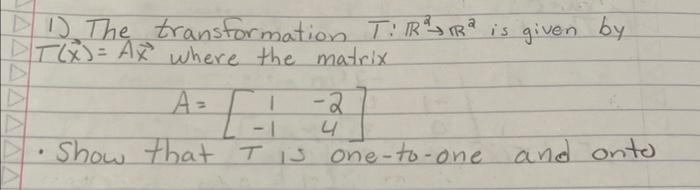 1) The transformation T: ℝ² → ℝ² is given by
T(x⃗) = Ax⃗ where the matrix
A = [ 1 -2
-1 4 ]
• Show that T is one-to-one and onto